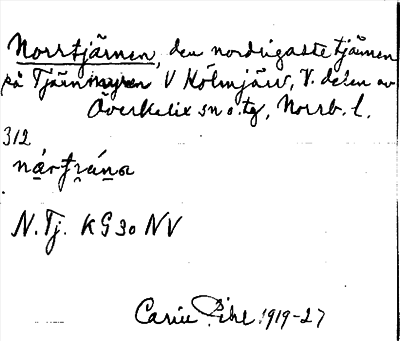 Norrtjärnen, den nordligaste tjärnen
på Tjärnmyren V Kölmjärv, V. delen av
Överkalix sn o. tg, Norrb. l.
312
N. Tj. KG 30 NV
Carin Pihl 1919-27